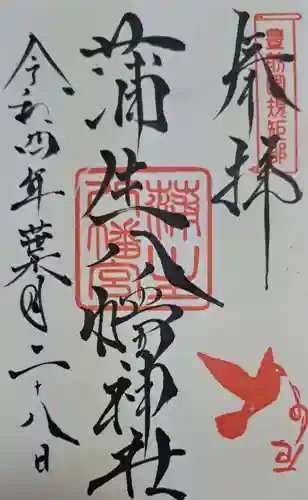 奉拝
豊前国規矩郡
蒲生八幡神社
蒲生
八幡宮
令和四年葉月二十八日